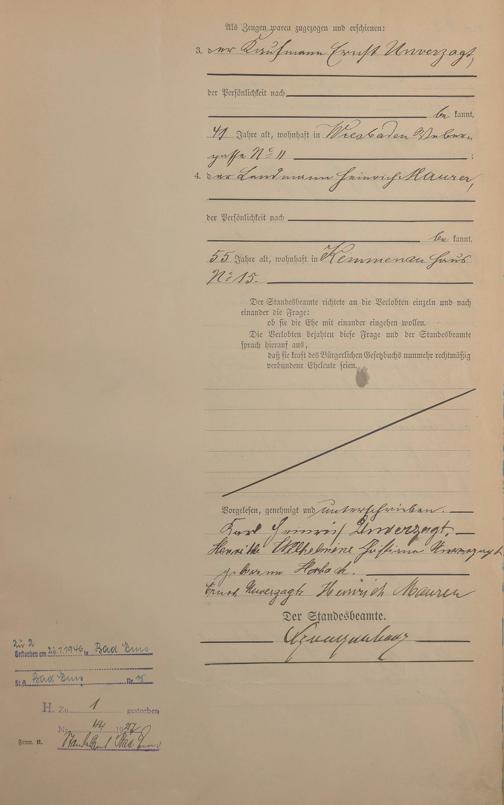 Als Zeugen waren zugezogen und erschienen:
3. der Kaufmann Ernst Unverzagt,
der Persönlichkeit nach
be kannt,
41 Jahre alt, wohnhaft in Wiesbaden Weber-
gasse No 11 ;
4. der Landmann Heinrich Maurer,
der Persönlichkeit nach
be kannt,
55 Jahre alt, wohnhaft in Kemmenau Haus
No 15.
Der Standesbeamte richtete an die Verlobten einzeln und nach
einander die Frage:
ob sie die Ehe mit einander eingehen wollen.
Die Verlobten bejahten diese Frage und der Standesbeamte
sprach hierauf aus,
daß sie kraft des Bürgerlichen Gesetzbuchs nunmehr rechtmäßig
verbundene Eheleute seien.
Vorgelesen, genehmigt und unterschrieben.
Karl Heinrich Unverzagt.
Wilhelmine Unverzagt
geborene
Ernst Unverzagt Heinrich Maurer
Der Standesbeamte.
zu 2
Gestorben am 1946 in Bad Ems
St.A. Bad Ems Nr.
H. Zu 1 gestorben
Nr. 44 19
Form. B.
Bad Ems